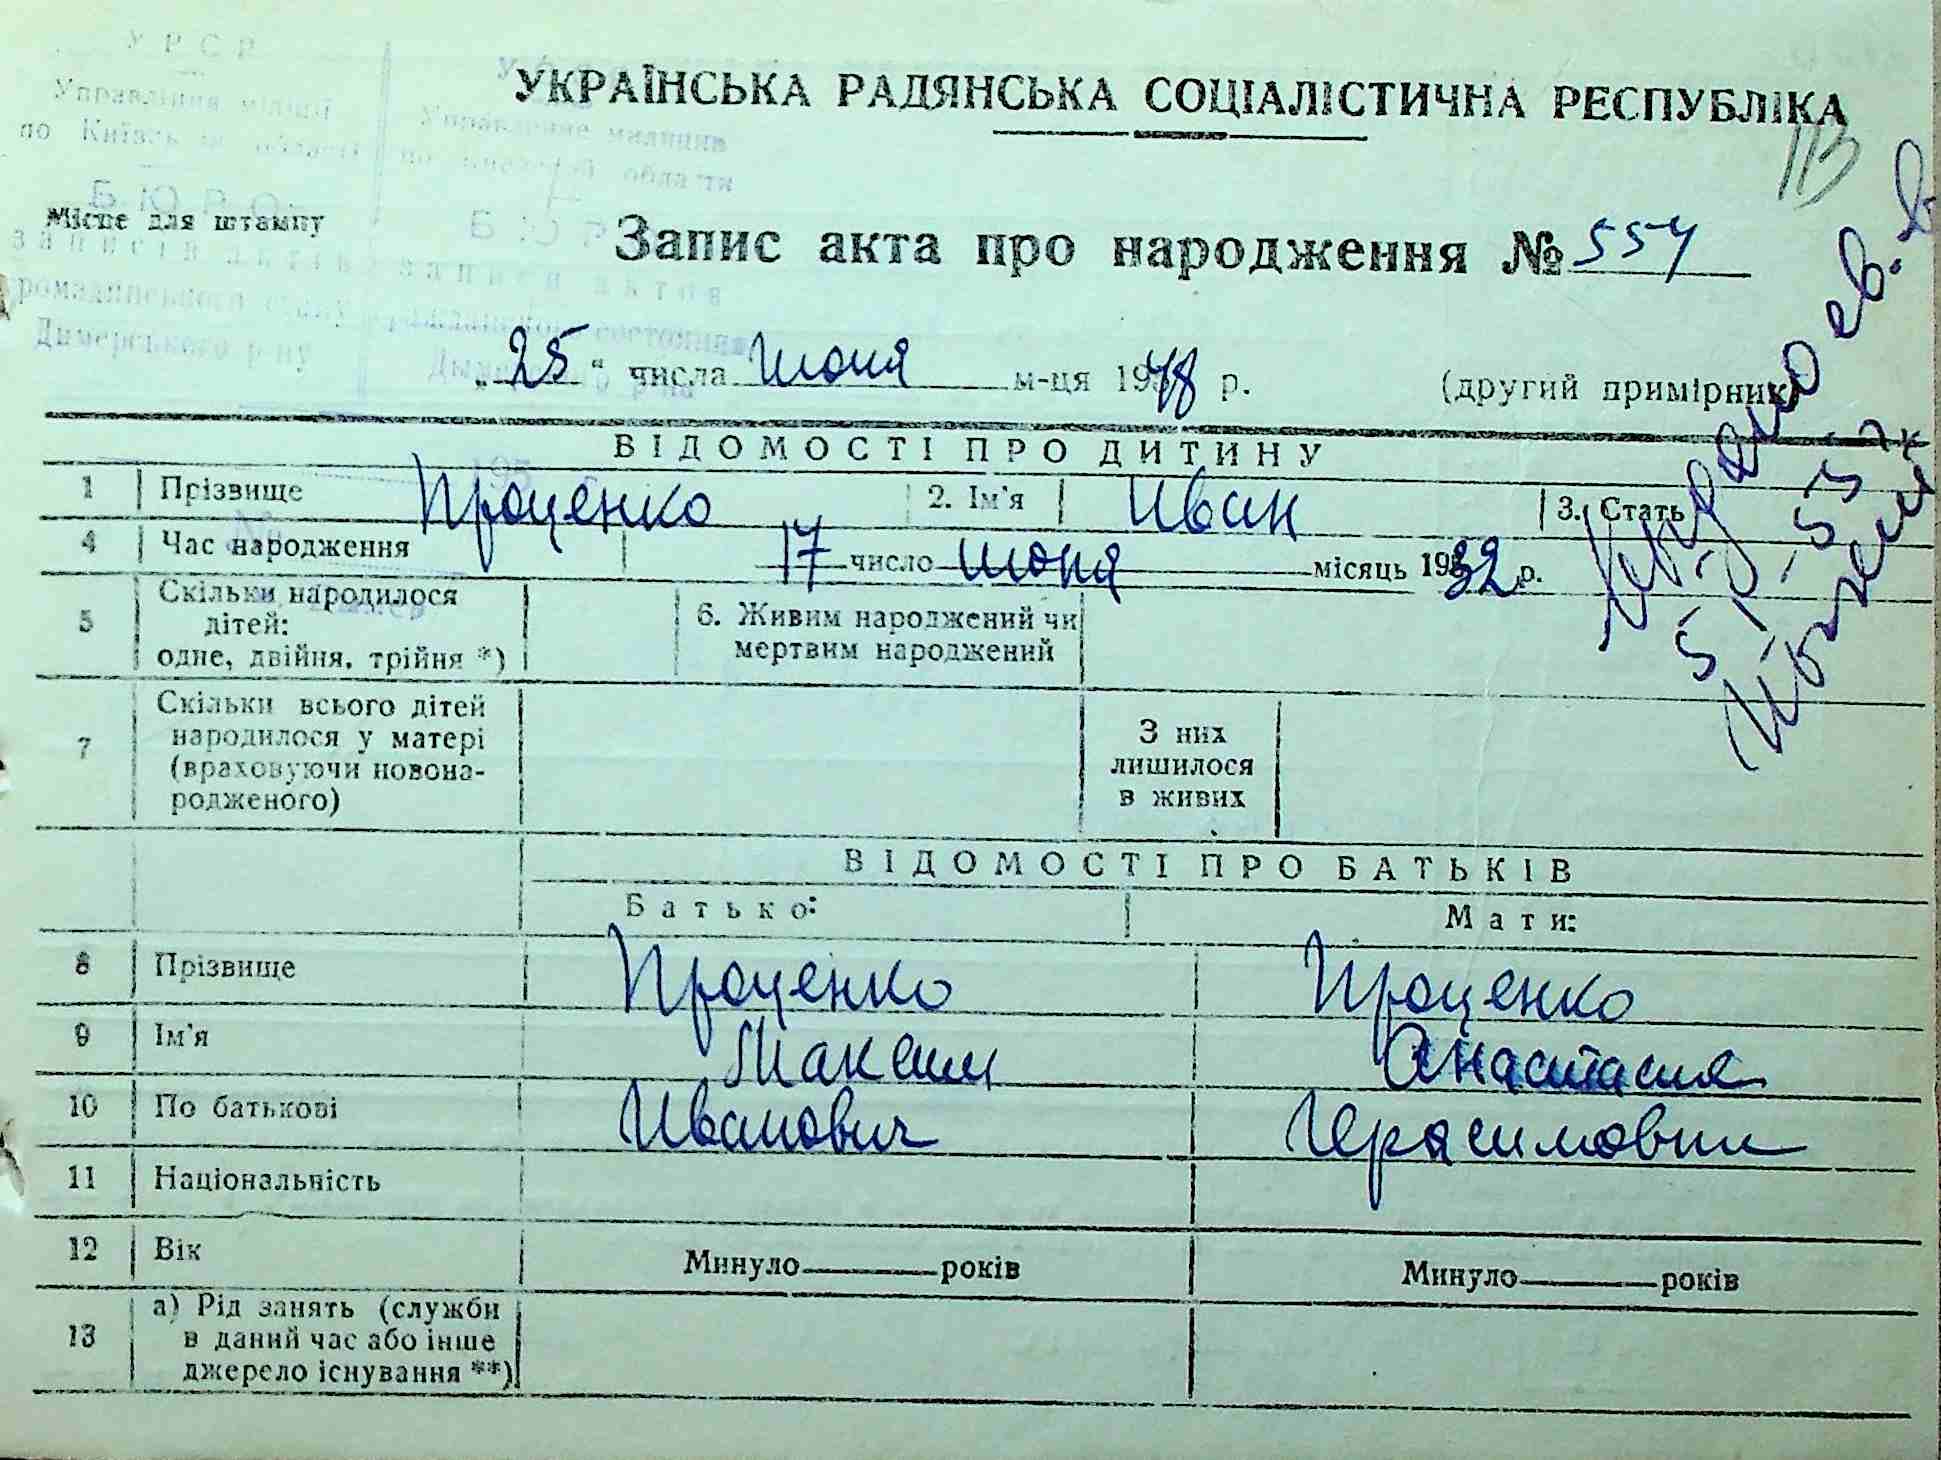 УРСР
Управління міліції
по Київській області
БЮРО
записів актів
громадянського стану
Димерського р-ну
Управление милиции
по Киевской области
записи актов
гражданского состояния
УКРАЇНСЬКА РАДЯНСЬКА СОЦІАЛІСТИЧНА РЕСПУБЛІКА
Місце для штампу
Запис акта про народження № 554
„25“ числа Июня м-ця 1948 р. (другий примірник)
ВІДОМОСТІ ПРО ДИТИНУ
1 Прізвище Проценко 2. Ім'я Иван 3. Стать
4 Час народження 17 число июня місяць 1932 р.
5 Скільки народилося дітей: одне, двійня, трійня *)
6. Живим народжений чи мертвим народжений
7 Скільки всього дітей народилося у матері (враховуючи новонародженого)
З них лишилося в живих
ВІДОМОСТІ ПРО БАТЬКІВ
Батько: Мати:
8 Прізвище Проценко Проценко
9 Ім'я Максим Анастасия
10 По батькові Иванович Герасимовна
11 Національність
12 Вік Минуло років Минуло років
13 а) Рід занять (служби в даний час або інше джерело існування **)